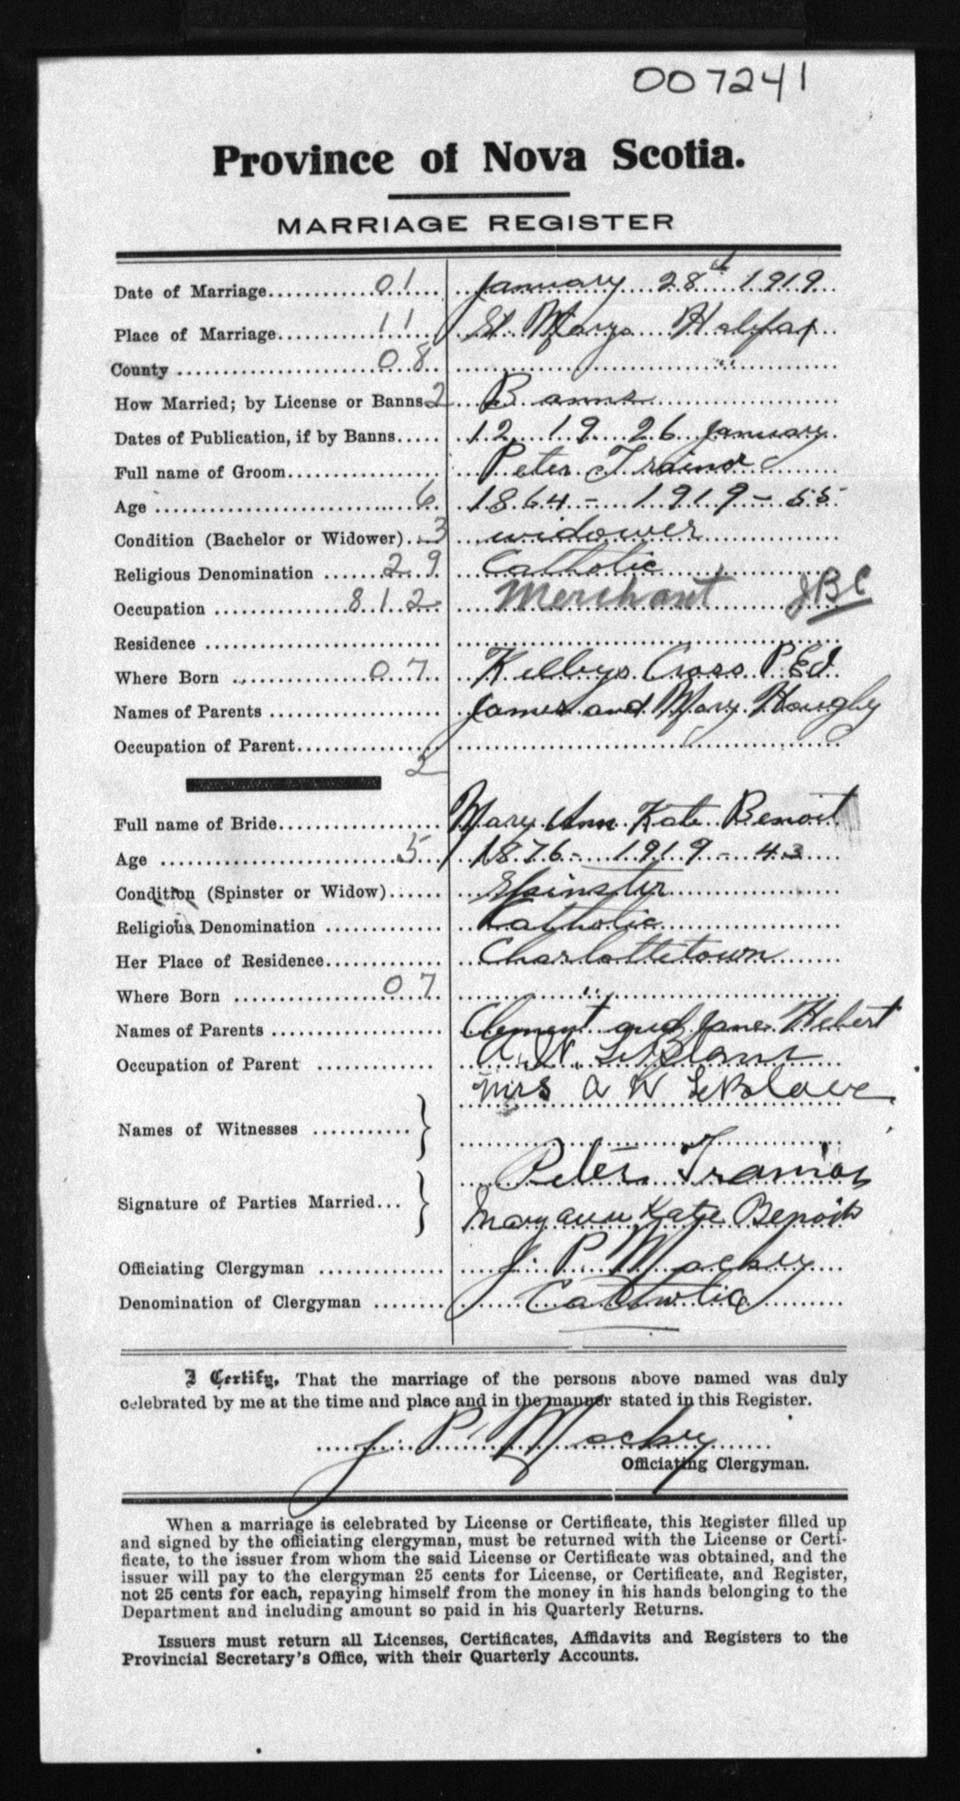 007241
Province of Nova Scotia.
MARRIAGE REGISTER
Date of Marriage 01 January 28th 1919
Place of Marriage 11 St Marys Halifax
County 08 "
How Married; by License or Banns 2 Banns
Dates of Publication, if by Banns 12 19 26 January
Full name of Groom Peter Trainor
Age 6 1864 - 1919 - 55
Condition (Bachelor or Widower) 3 widower
Religious Denomination 29 Catholic
Occupation 812 Merchant JBC
Residence
Where Born 07 Kellys Cross P.Ed
Names of Parents James and Mary Haughy
Occupation of Parent
2
Full name of Bride Mary Ann Kate Benoit
Age 5 1876 - 1919 - 43
Condition (Spinster or Widow) Spinster
Religious Denomination Catholic
Her Place of Residence Charlottetown
Where Born 07 "
Names of Parents Clement and Jane Hebert
Occupation of Parent A. W. LeBlanc
Mrs A W LeBlanc
Names of Witnesses
Peter Trainor
Signature of Parties Married
Mary ann Katie Benoit
Officiating Clergyman J. P. Mackey
Denomination of Clergyman Catholic
I Certify, That the marriage of the persons above named was duly
celebrated by me at the time and place and in the manner stated in this Register.
J. P. Mackey
Officiating Clergyman.
When a marriage is celebrated by License or Certificate, this Register filled up
and signed by the officiating clergyman, must be returned with the License or Certi-
ficate, to the issuer from whom the said License or Certificate was obtained, and the
issuer will pay to the clergyman 25 cents for License, or Certificate, and Register,
not 25 cents for each, repaying himself from the money in his hands belonging to the
Department and including amount so paid in his Quarterly Returns.
Issuers must return all Licenses, Certificates, Affidavits and Registers to the
Provincial Secretary's Office, with their Quarterly Accounts.